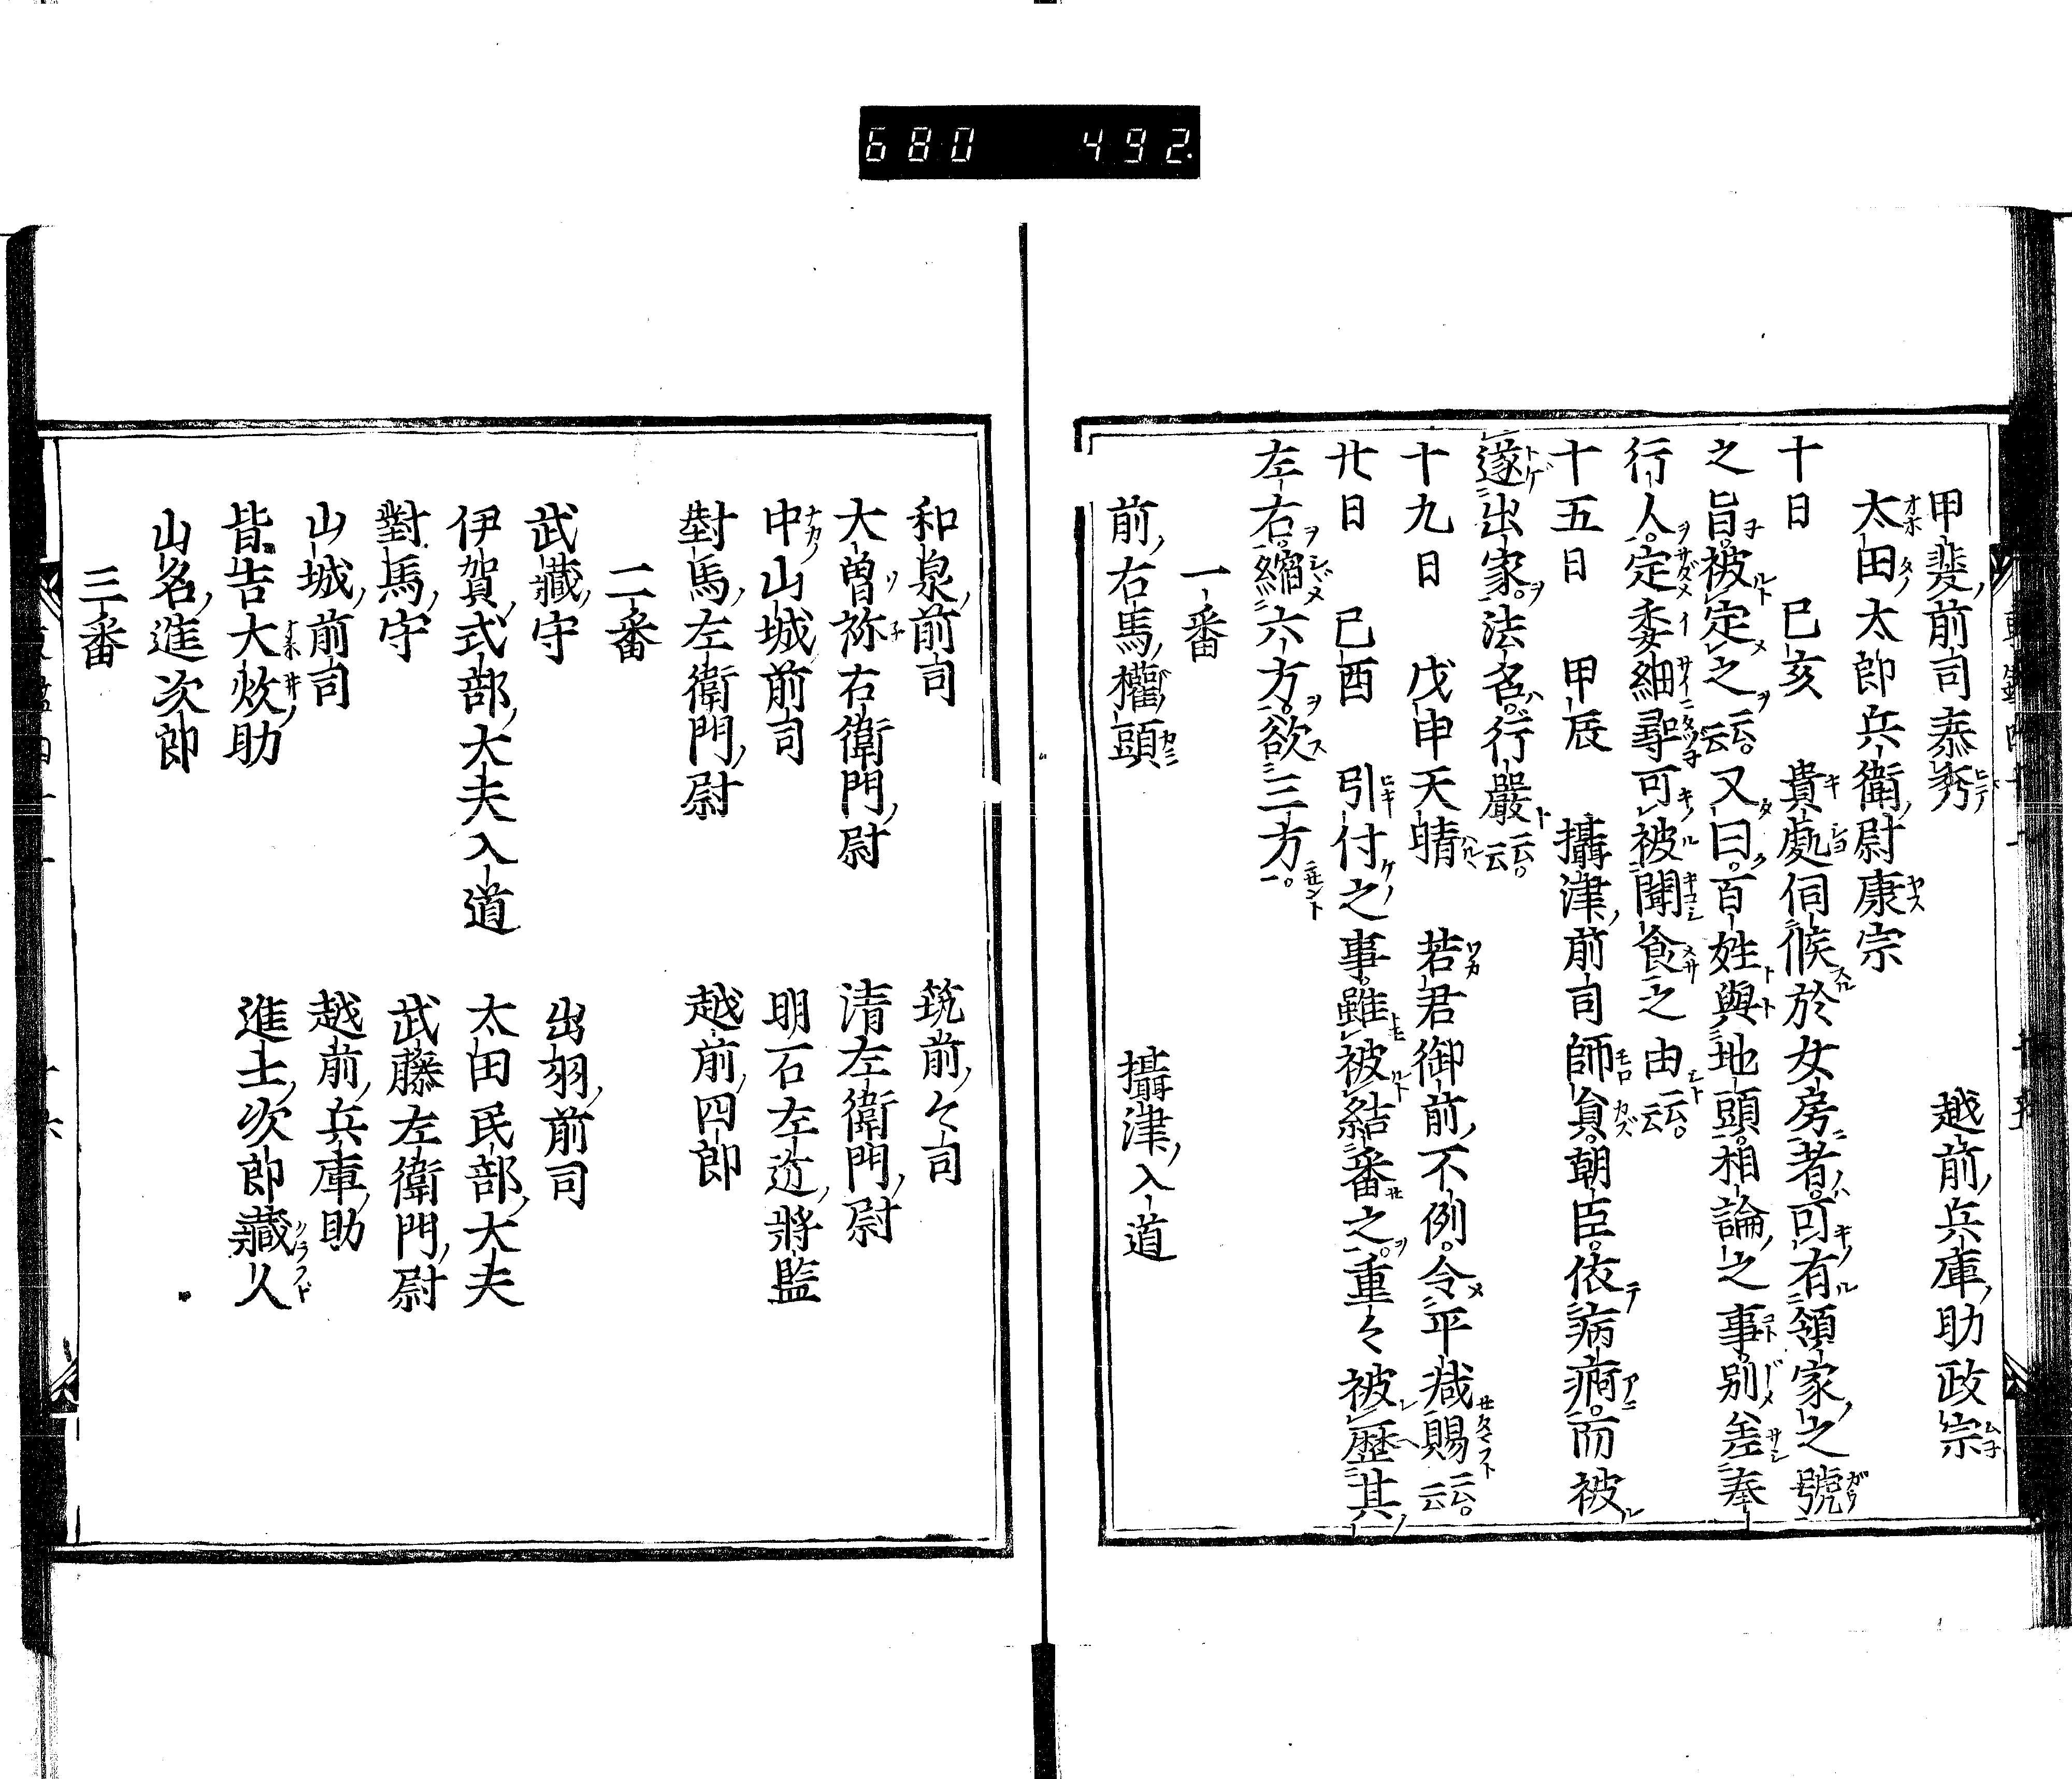 680 492
甲斐前司泰秀 越前兵庫助政宗
太田太郎兵衛尉康宗
十日 己亥 貴處伺候於女房者可有領家之號
之旨被定之云云又曰百姓與地頭相論之事別差奉
行人定委細尋可被聞食之由云云
十五日 甲辰 攝津前司師員朝臣依病痾而被
遂出家法名行嚴云云
十九日 戊申天晴 若君御前不例令平減賜云云
廿日 己酉 引付之事雖被結番之重々被歷其
左右縮六方欲三方
一番
前右馬權頭 攝津入道
和泉前司 筑前々司
大曽祢右衛門尉 清左衛門尉
中山城前司 明石左近將監
對馬左衛門尉 越前四郎
二番
武藏守 出羽前司
伊賀式部大夫入道 太田民部大夫
對馬守 武藤左衛門尉
山城前司 越前兵庫助
皆吉大炊助 進士次郎藏人
山名進次郎
三番